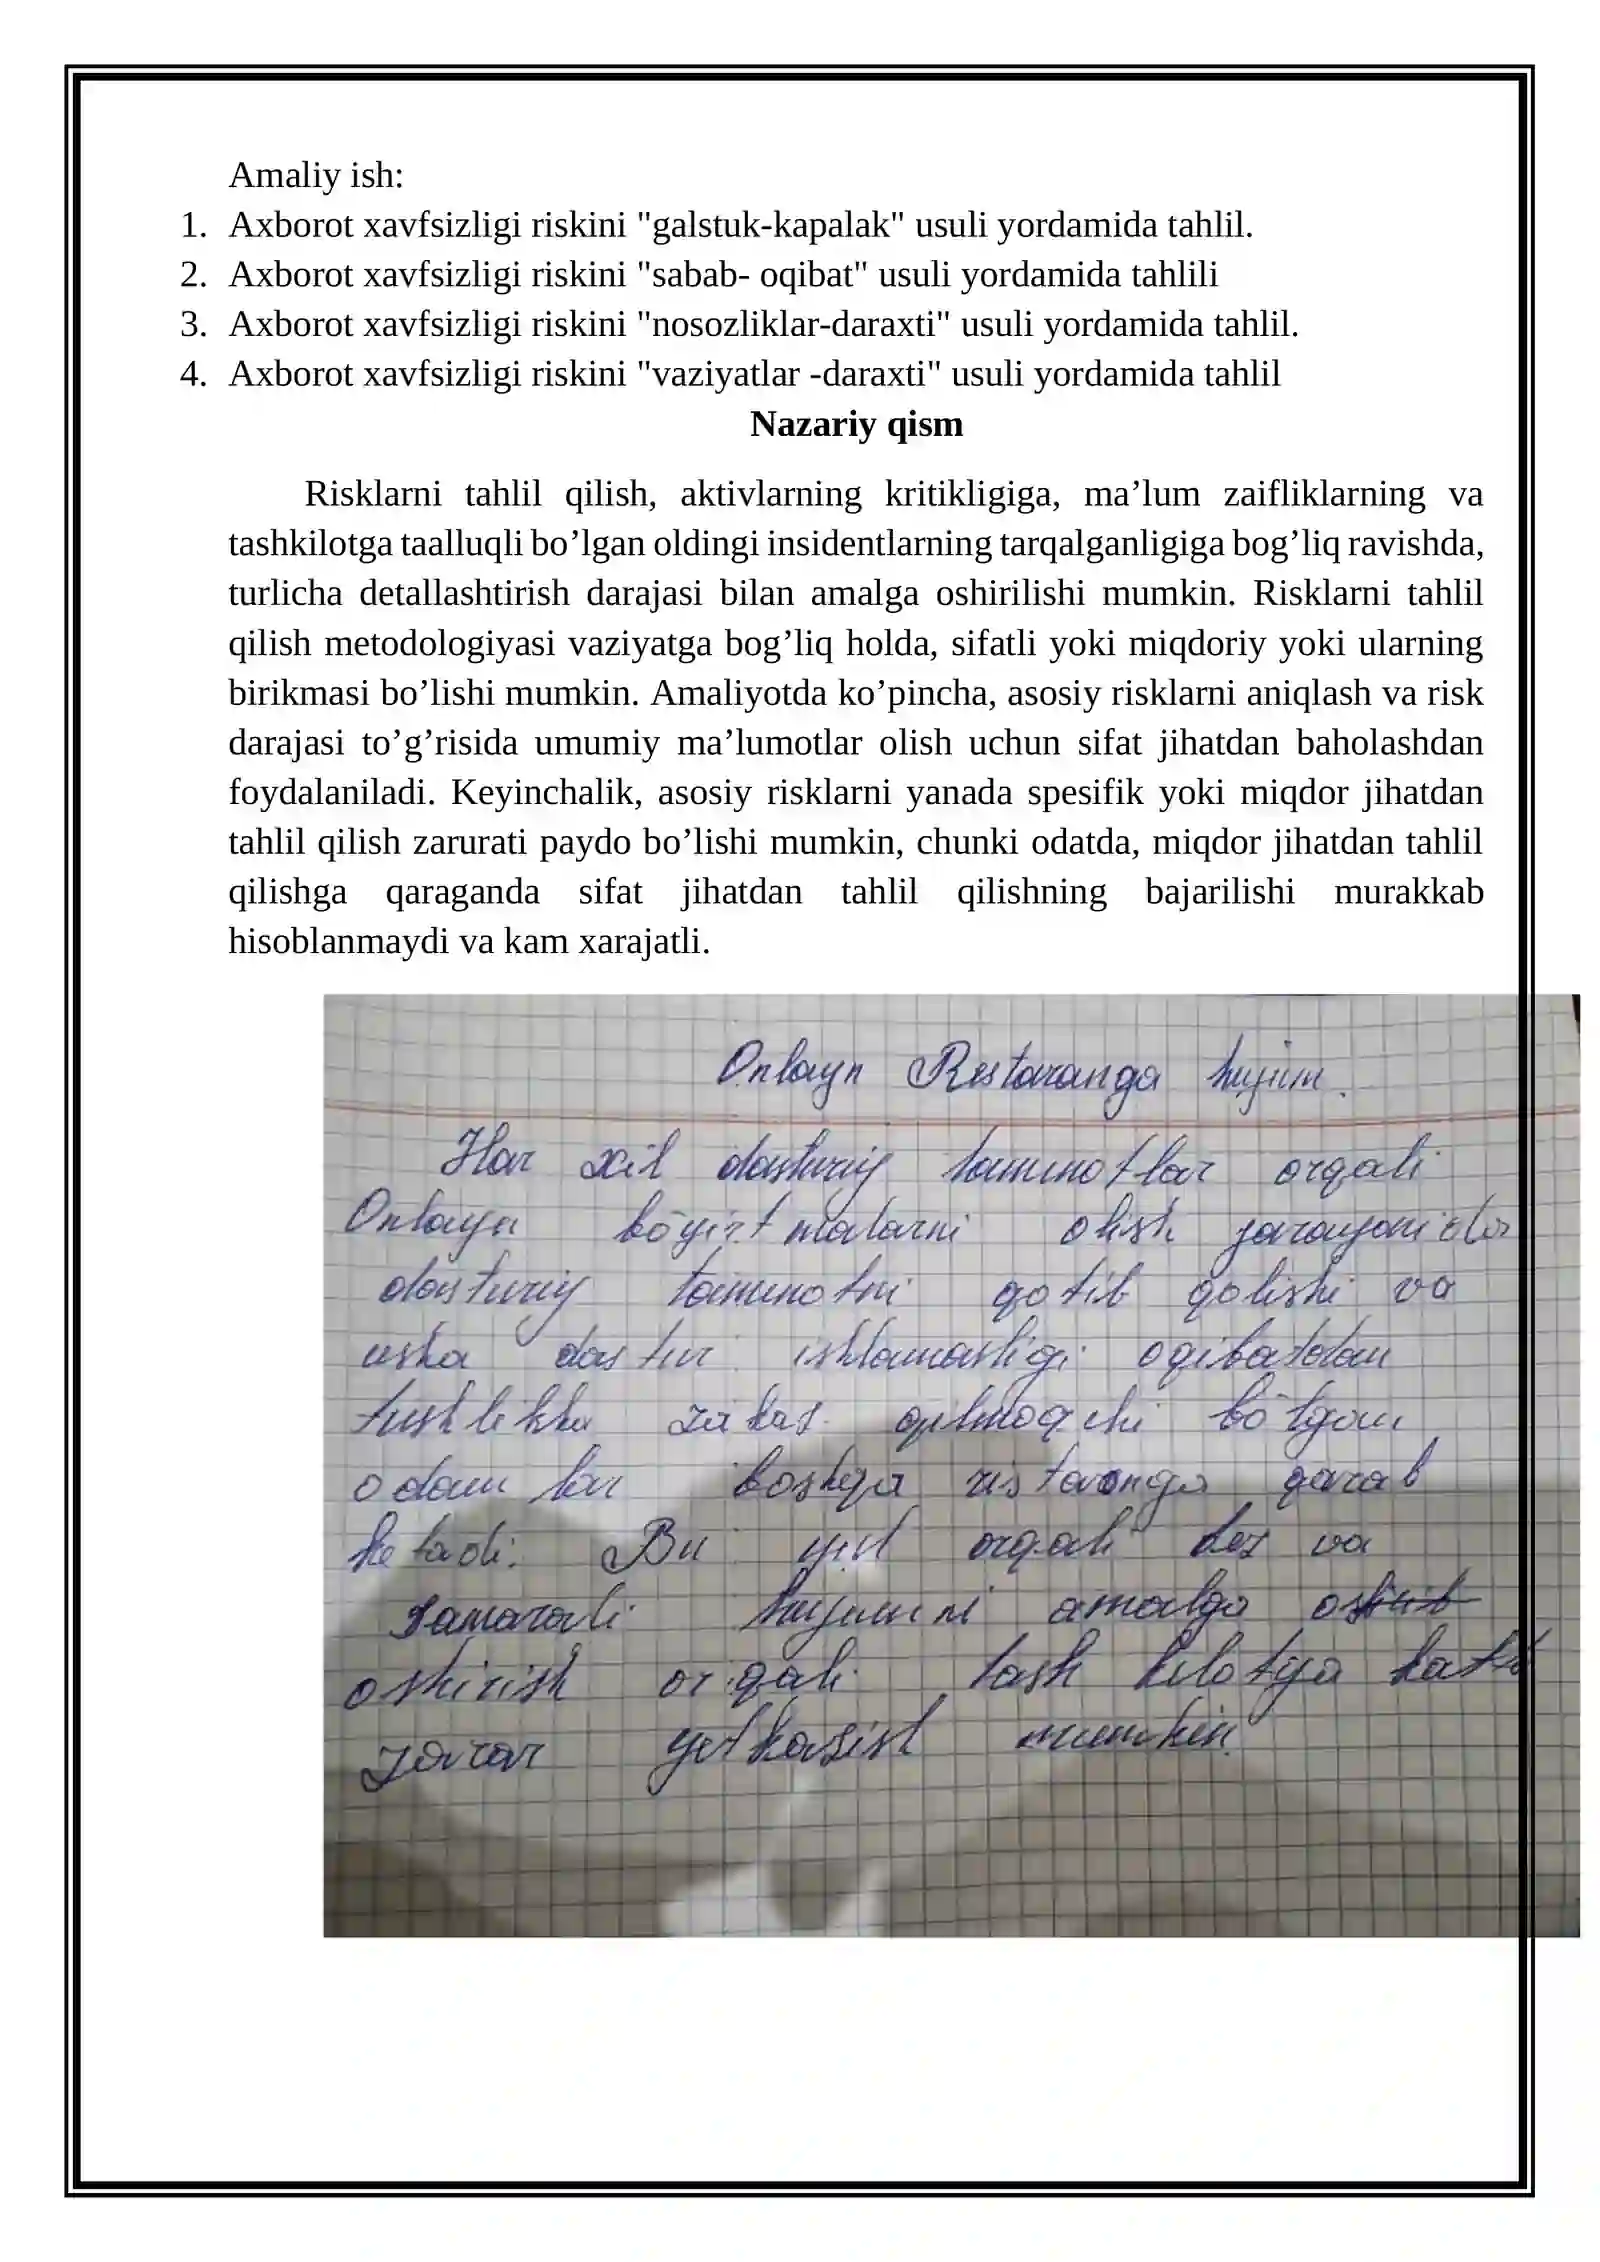 Amaliy ish:
1. Axborot xavfsizligi riskini "galstuk-kapalak" usuli yordamida tahlil.
2. Axborot xavfsizligi riskini "sabab- oqibat" usuli yordamida tahlili
3. Axborot xavfsizligi riskini "nosozliklar-daraxti" usuli yordamida tahlil.
4. Axborot xavfsizligi riskini "vaziyatlar -daraxti" usuli yordamida tahlil
Nazariy qism
Risklarni tahlil qilish, aktivlarning kritikligiga, ma’lum zaifliklarning va
tashkilotga taalluqli bo’lgan oldingi insidentlarning tarqalganligiga bog’liq ravishda,
turlicha detallashtirish darajasi bilan amalga oshirilishi mumkin. Risklarni tahlil
qilish metodologiyasi vaziyatga bog’liq holda, sifatli yoki miqdoriy yoki ularning
birikmasi bo’lishi mumkin. Amaliyotda ko’pincha, asosiy risklarni aniqlash va risk
darajasi to’g’risida umumiy ma’lumotlar olish uchun sifat jihatdan baholashdan
foydalaniladi. Keyinchalik, asosiy risklarni yanada spesifik yoki miqdor jihatdan
tahlil qilish zarurati paydo bo’lishi mumkin, chunki odatda, miqdor jihatdan tahlil
qilishga qaraganda sifat jihatdan tahlil qilishning bajarilishi murakkab
hisoblanmaydi va kam xarajatli.
Onlayn Restaranga hujum.
Har xil dasturiy taminotlar orqali
Onlayn bo'yirtmalarni olish jarayonida
dasturiy taminotni qotib qolishi va
usha dastur ishlamasligi oqibatdan
tushlikka zakas qilmoqchi bo'lgan
odamlar boshqa ristoranga qarab
ketadi. Bu yol orqali tez va
samarali hujumni amalga oshirib
oshirish orqali tashkilotga katta
zarar yetkazish mumkin.